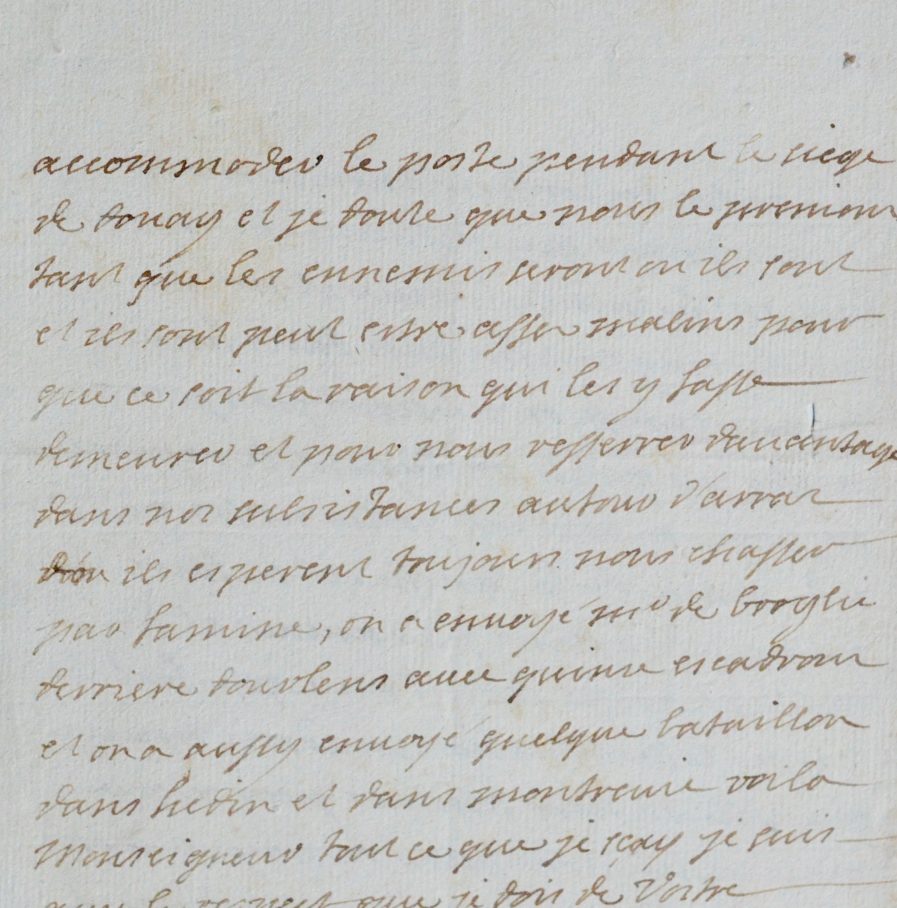 accommoder le poste pendant le siege
de douay et je doute que nous le prenions
tant que les ennemis seront ou ils sont
et ils sont peut estre asser malins pour
que ce soit la raison qui les y fasse
demeurer et pour nous resserrer davantage
dans nos subsistances autour d'arras
d'ou ils esperent toujours nous chasser
par famine, on a envoyé mr de broglie
derriere dourlens avec quinze escadrons
et on a aussy envoyé quelque bataillon
dans hedin et dans montreuie voila
Monseigneur tout ce que je sçay je suis
avec le respect que je dois de Vostre